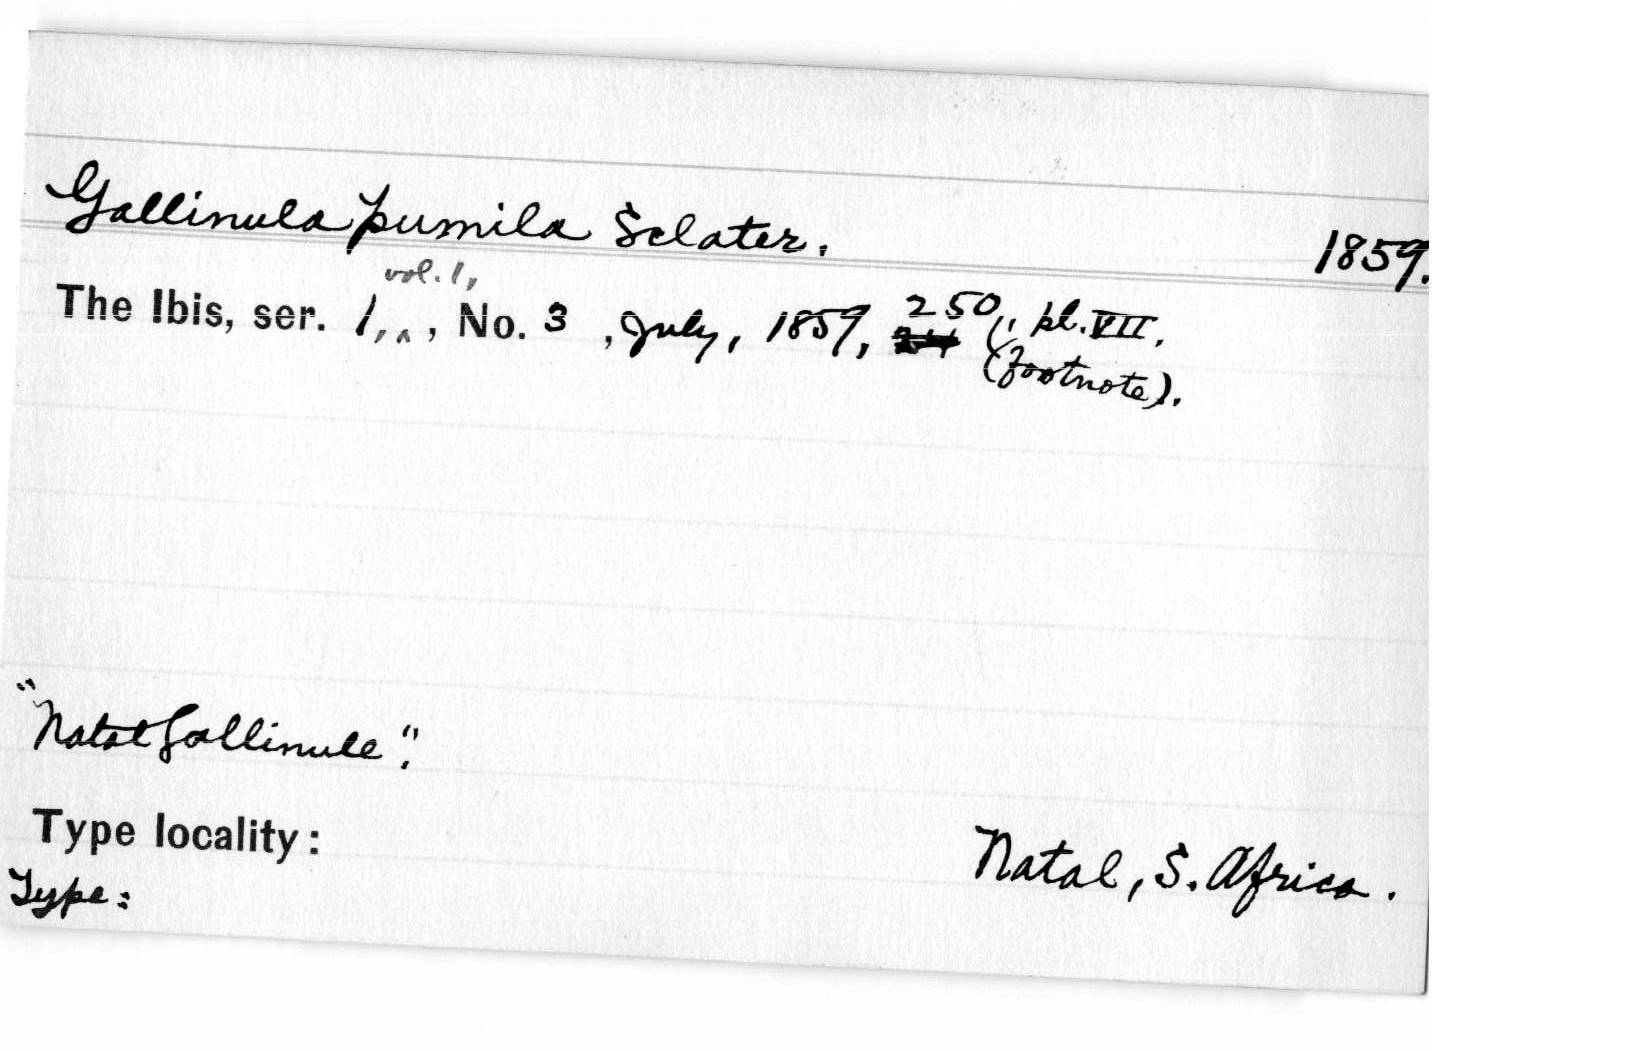 Gallinula pumila Sclater. 1859.
vol. 1,
The Ibis, ser. 1, ^ , No. 3 , July, 1859, 250, pl. VII.
(footnote).
"Natal Gallinule".
Type locality: Natal, S. Africa.
Type: